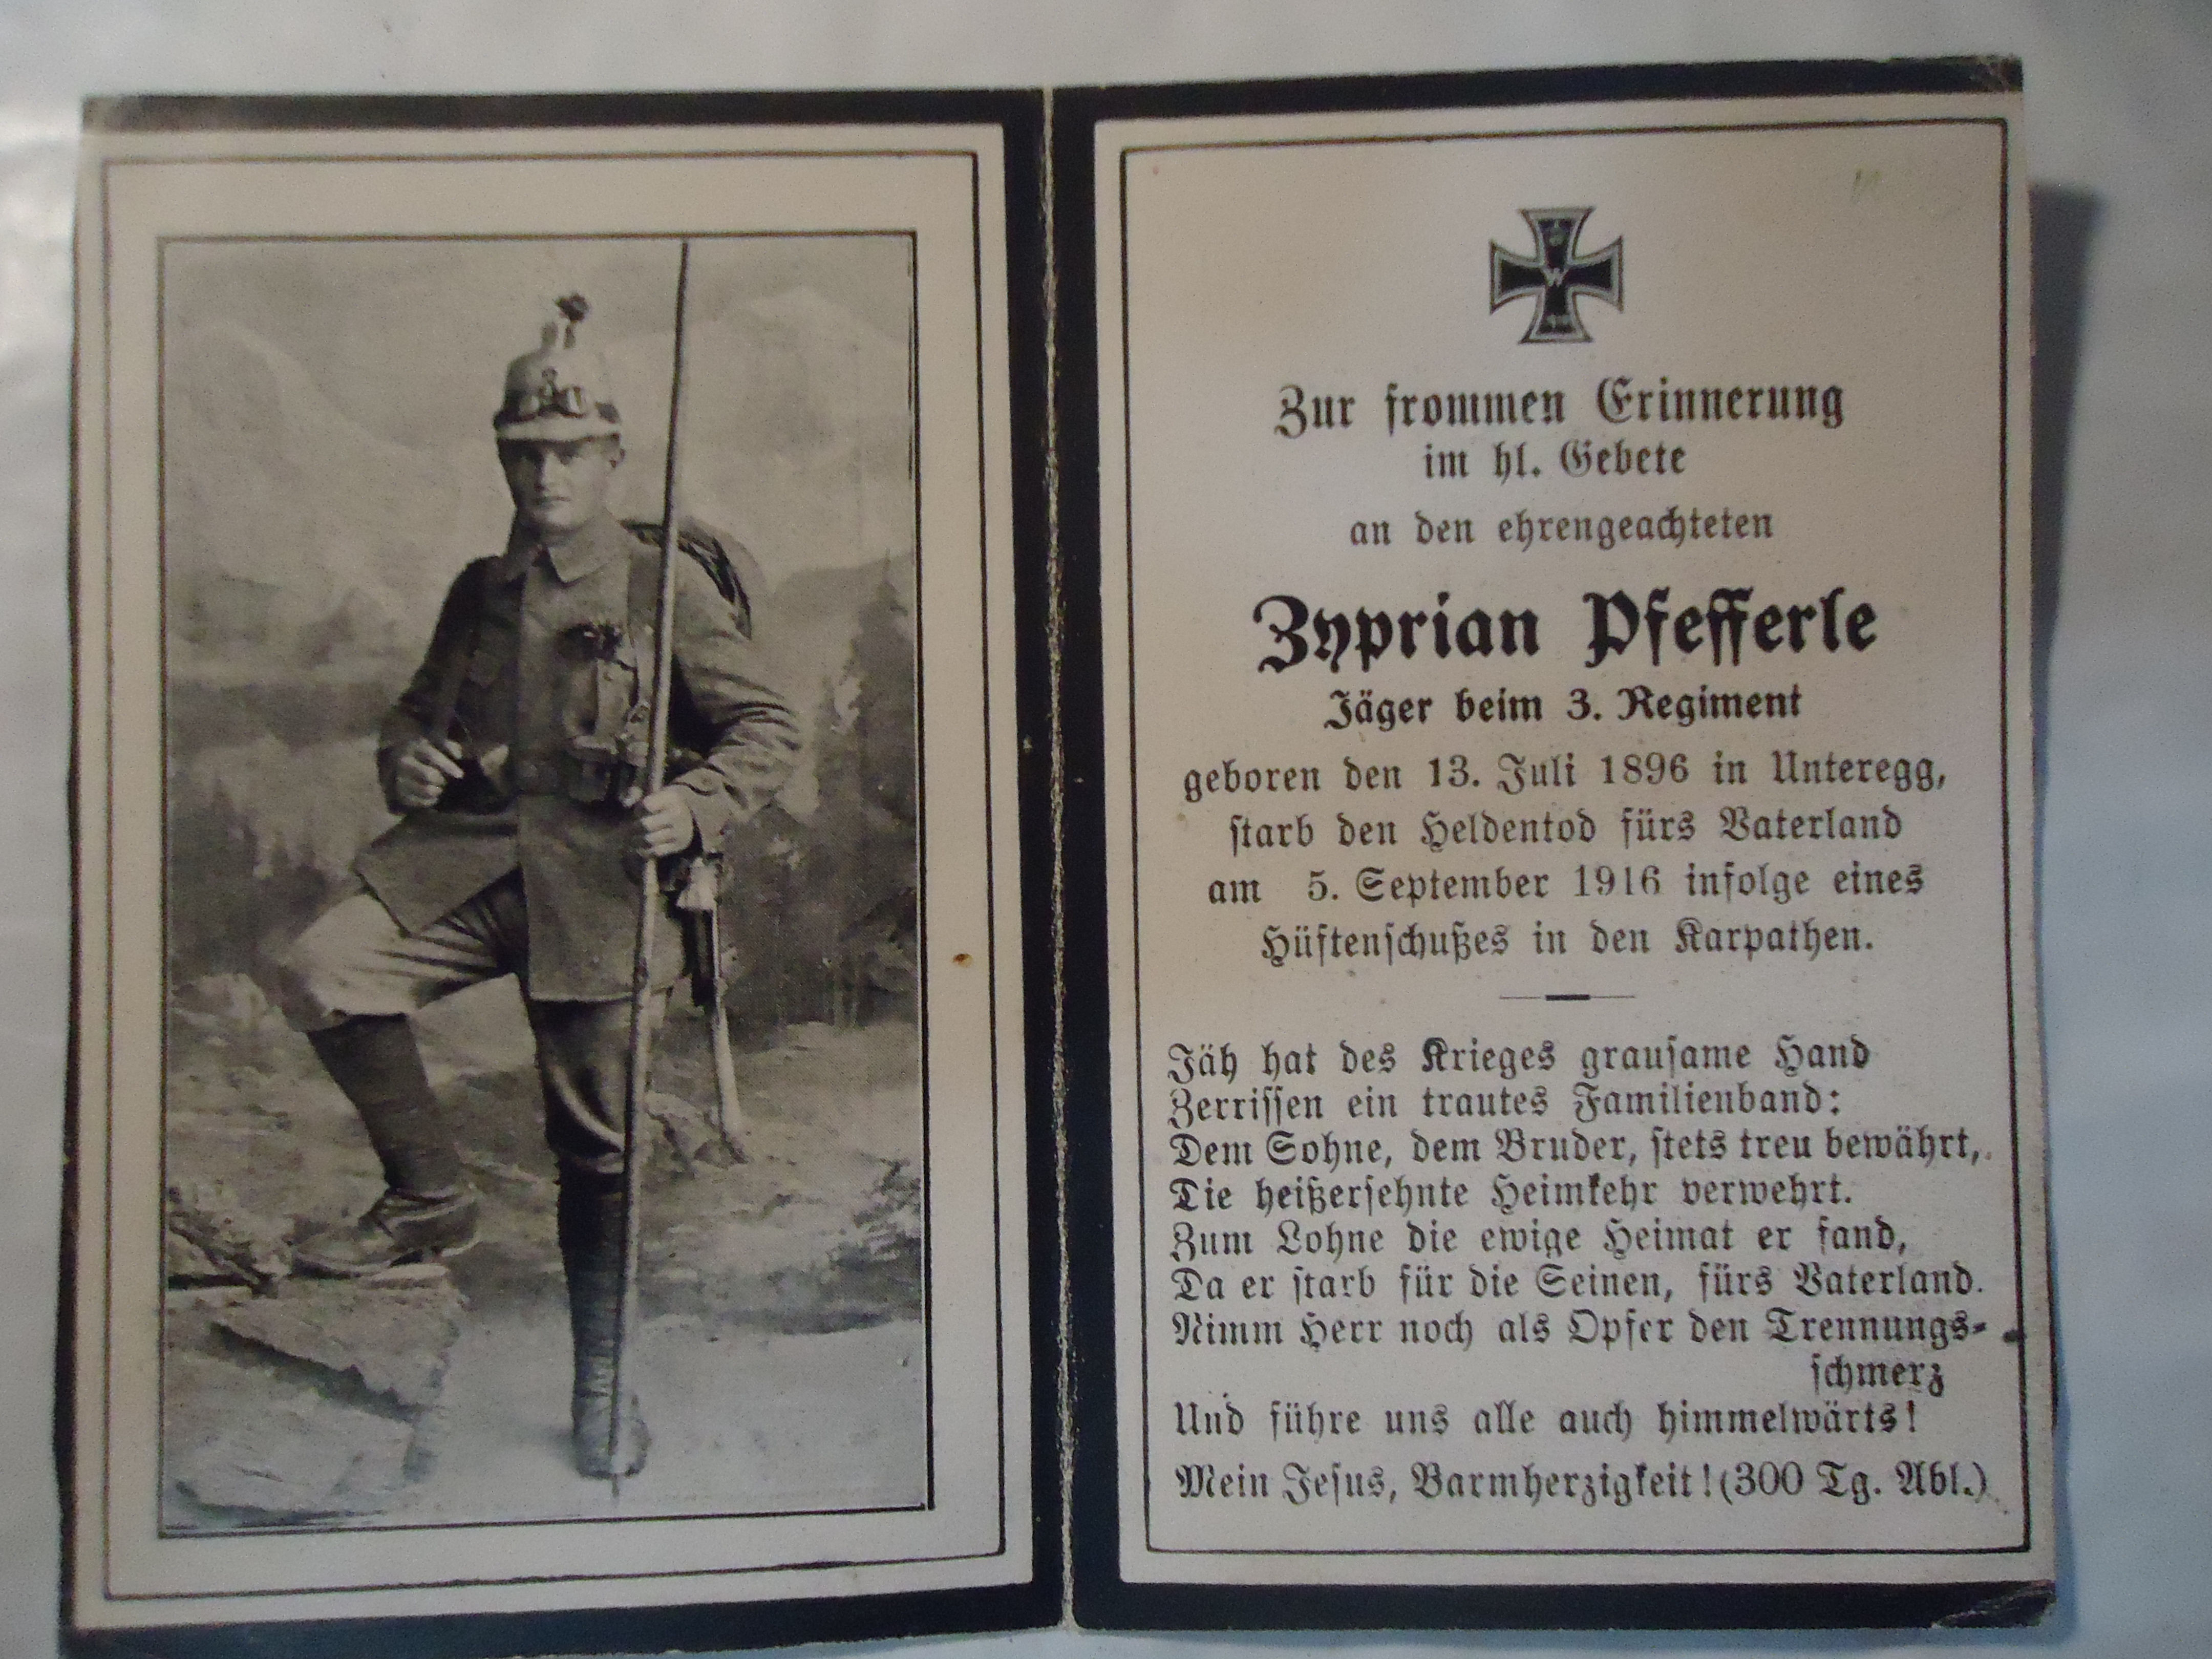 W
Zur frommen Erinnerung
im hl. Gebete
an den ehrengeachteten
Zyprian Pfefferle
Jäger beim 3. Regiment
geboren den 13. Juli 1896 in Unteregg,
starb den Heldentod fürs Vaterland
am 5. September 1916 infolge eines
Hüftenschußes in den Karpathen.
Jäh hat des Krieges grausame Hand
Zerrissen ein trautes Familienband:
Dem Sohne, dem Bruder, stets treu bewährt,
Die heißersehnte Heimkehr verwehrt.
Zum Lohne die ewige Heimat er fand,
Da er starb für die Seinen, fürs Vaterland.
Nimm Herr noch als Opfer den Trennungs-
schmerz
Und führe uns alle auch himmelwärts!
Mein Jesus, Barmherzigkeit! (300 Tg. Abl.)